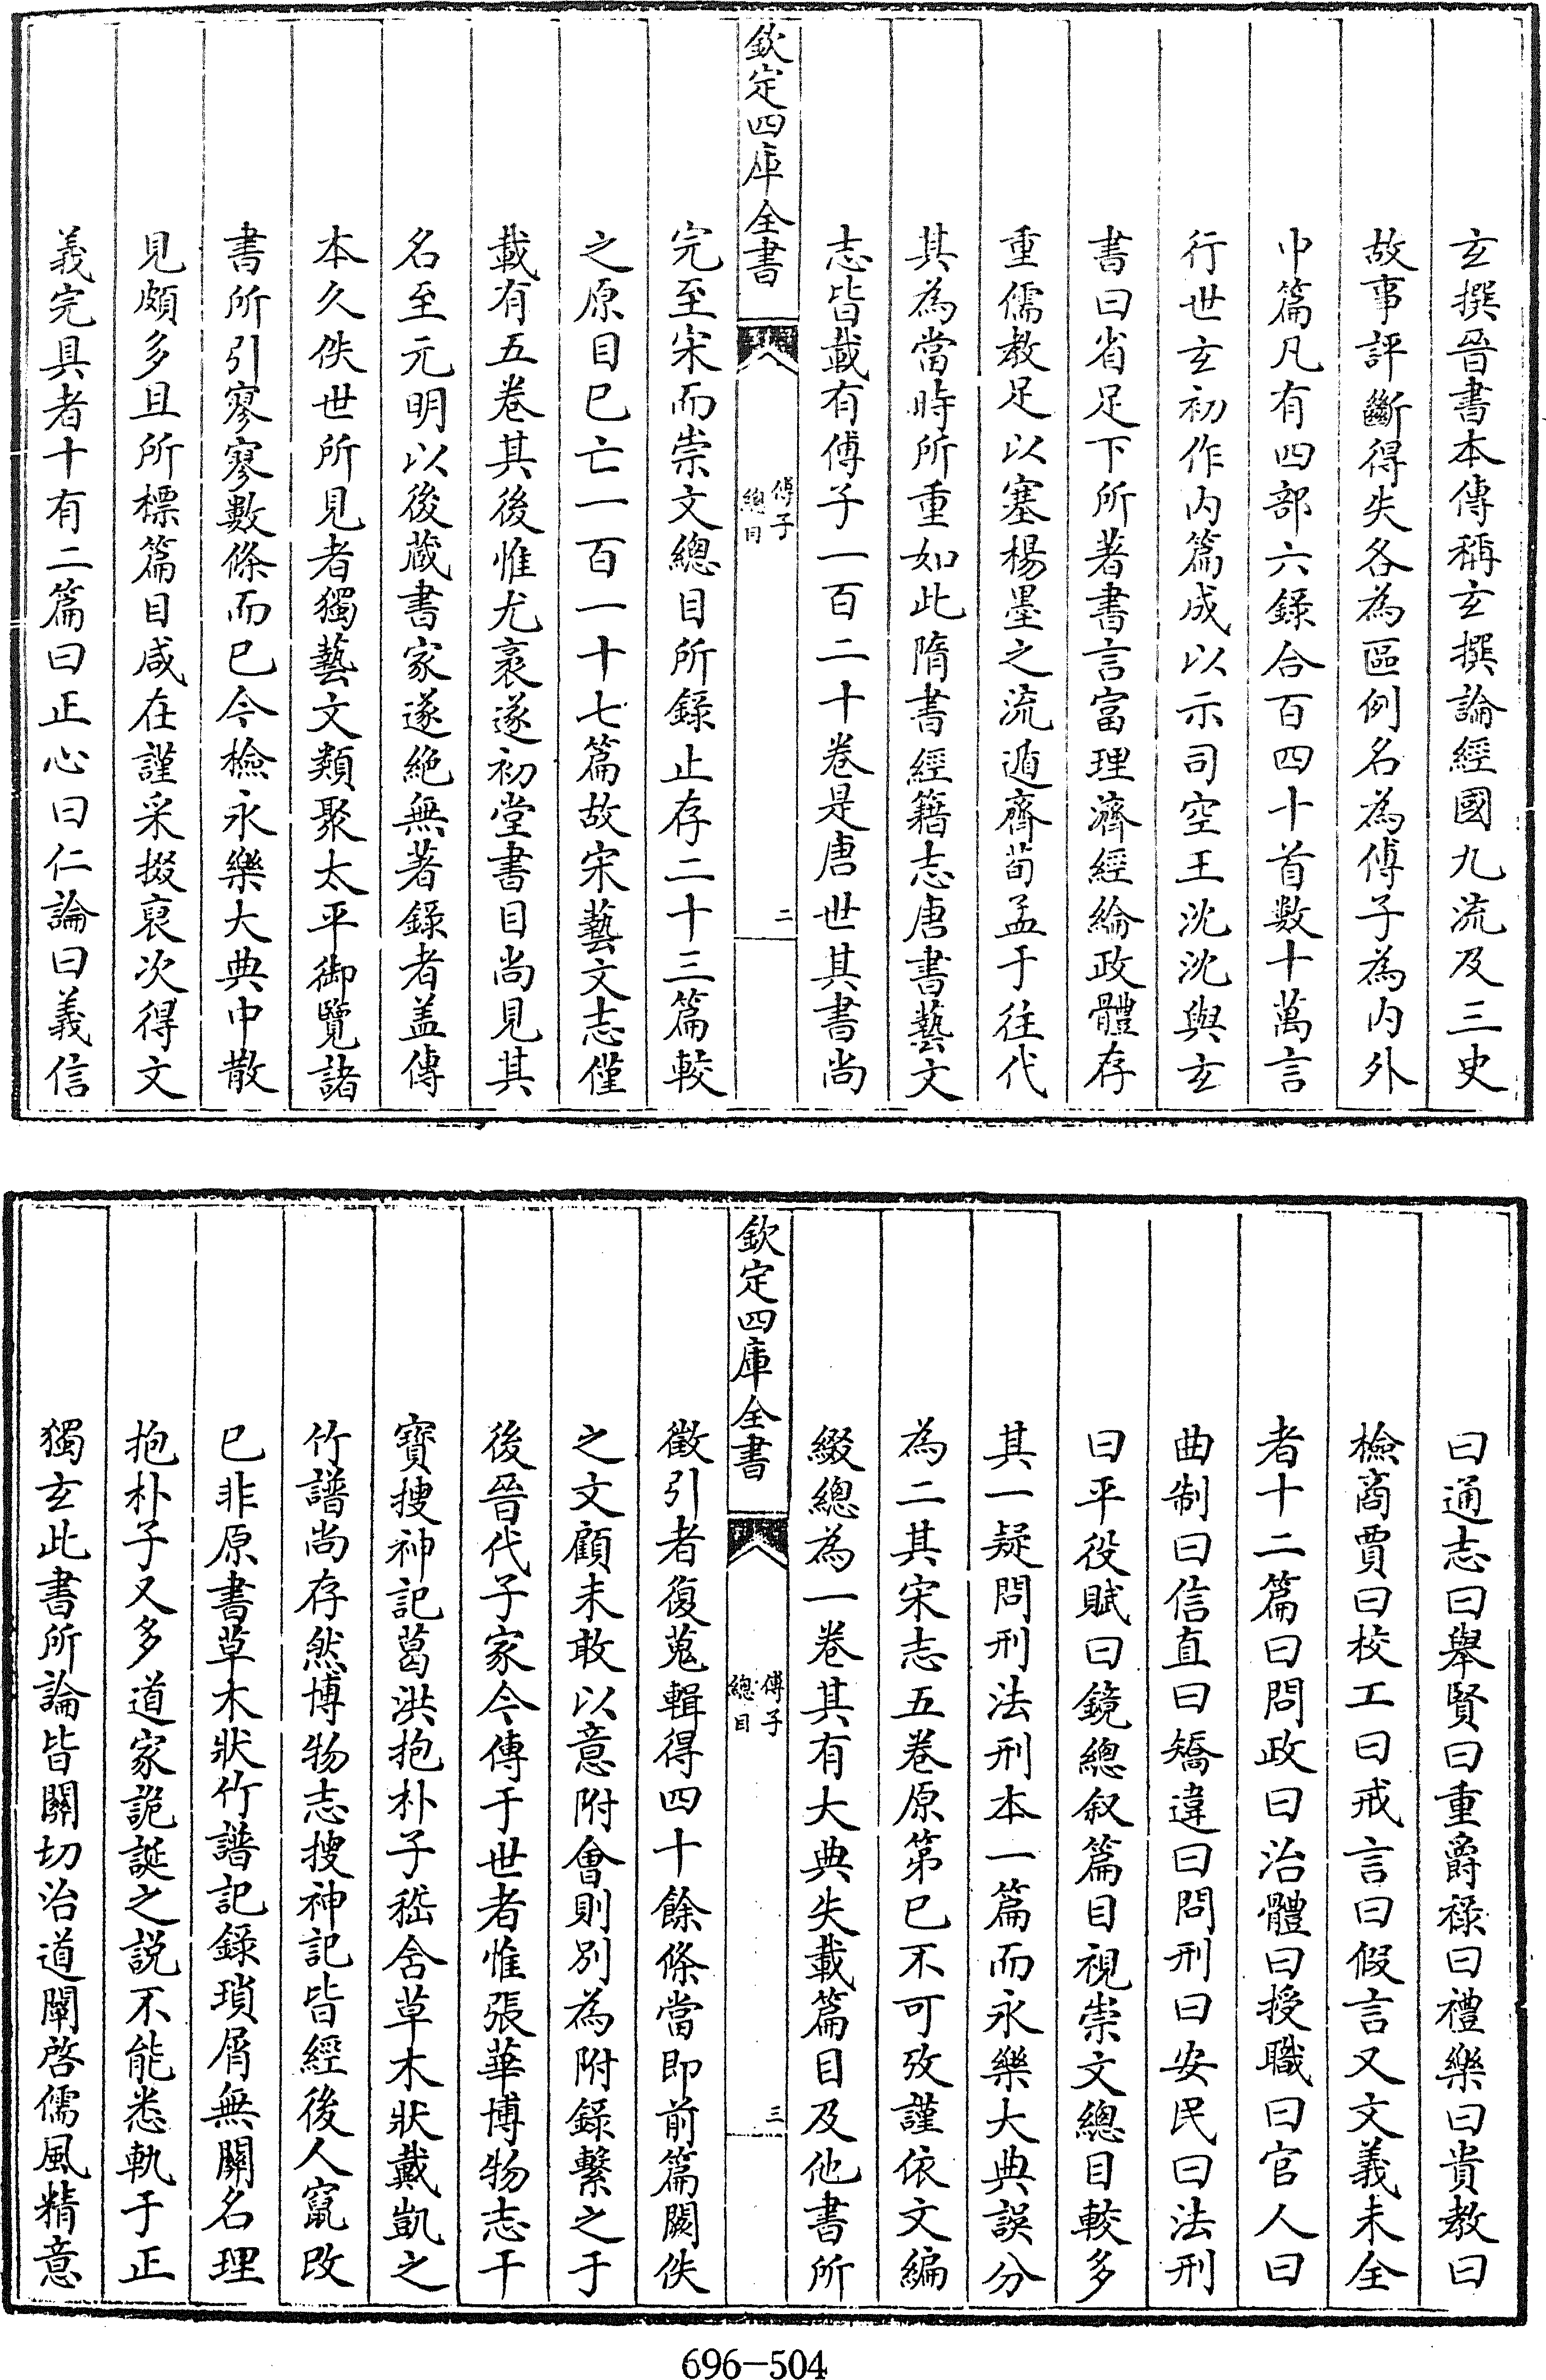 玄撰晉書本傳稱玄撰論經國九流及三史
故事評斷得失各為區例名為傅子為內外
中篇凡有四部六錄合百四十首數十萬言
行世玄初作內篇成以示司空王沈沈與玄
書曰省足下所著書言富理濟經綸政體存
重儒教足以塞楊墨之流遁齊荀孟于往代
其為當時所重如此隋書經籍志唐書藝文
志皆載有傅子一百二十卷是唐世其書尚
欽定四庫全書
傅子
總目
二
完至宋而崇文總目所錄止存二十三篇較
之原目已亡一百一十七篇故宋藝文志僅
載有五卷其後惟尤袤遂初堂書目尚見其
名至元明以後藏書家遂絶無著錄者盖傳
本久佚世所見者獨藝文類聚太平御覽諸
書所引寥寥數條而已今檢永樂大典中散
見頗多且所標篇目咸在謹采掇裒次得文
義完具者十有二篇曰正心曰仁論曰義信
曰通志曰舉賢曰重爵祿曰禮樂曰貴教曰
檢商賈曰校工曰戒言曰假言又文義未全
者十二篇曰問政曰治體曰授職曰官人曰
曲制曰信直曰矯違曰問刑曰安民曰法刑
曰平役賦曰鏡總叙篇目視崇文總目較多
其一疑問刑法刑本一篇而永樂大典誤分
為二其宋志五卷原第已不可攷謹依文編
綴總為一卷其有大典失載篇目及他書所
欽定四庫全書
傅子
總目
三
徵引者復蒐輯得四十餘條當即前篇闕佚
之文顧未敢以意附會則別為附錄繫之于
後晉代子家今傳于世者惟張華博物志干
寶搜神記葛洪抱朴子嵇含草木狀戴凱之
竹譜尚存然博物志搜神記皆經後人竄改
已非原書草木狀竹譜記錄瑣屑無關名理
抱朴子又多道家詭誕之説不能悉軌于正
獨玄此書所論皆關切治道闡啓儒風精意
696-504